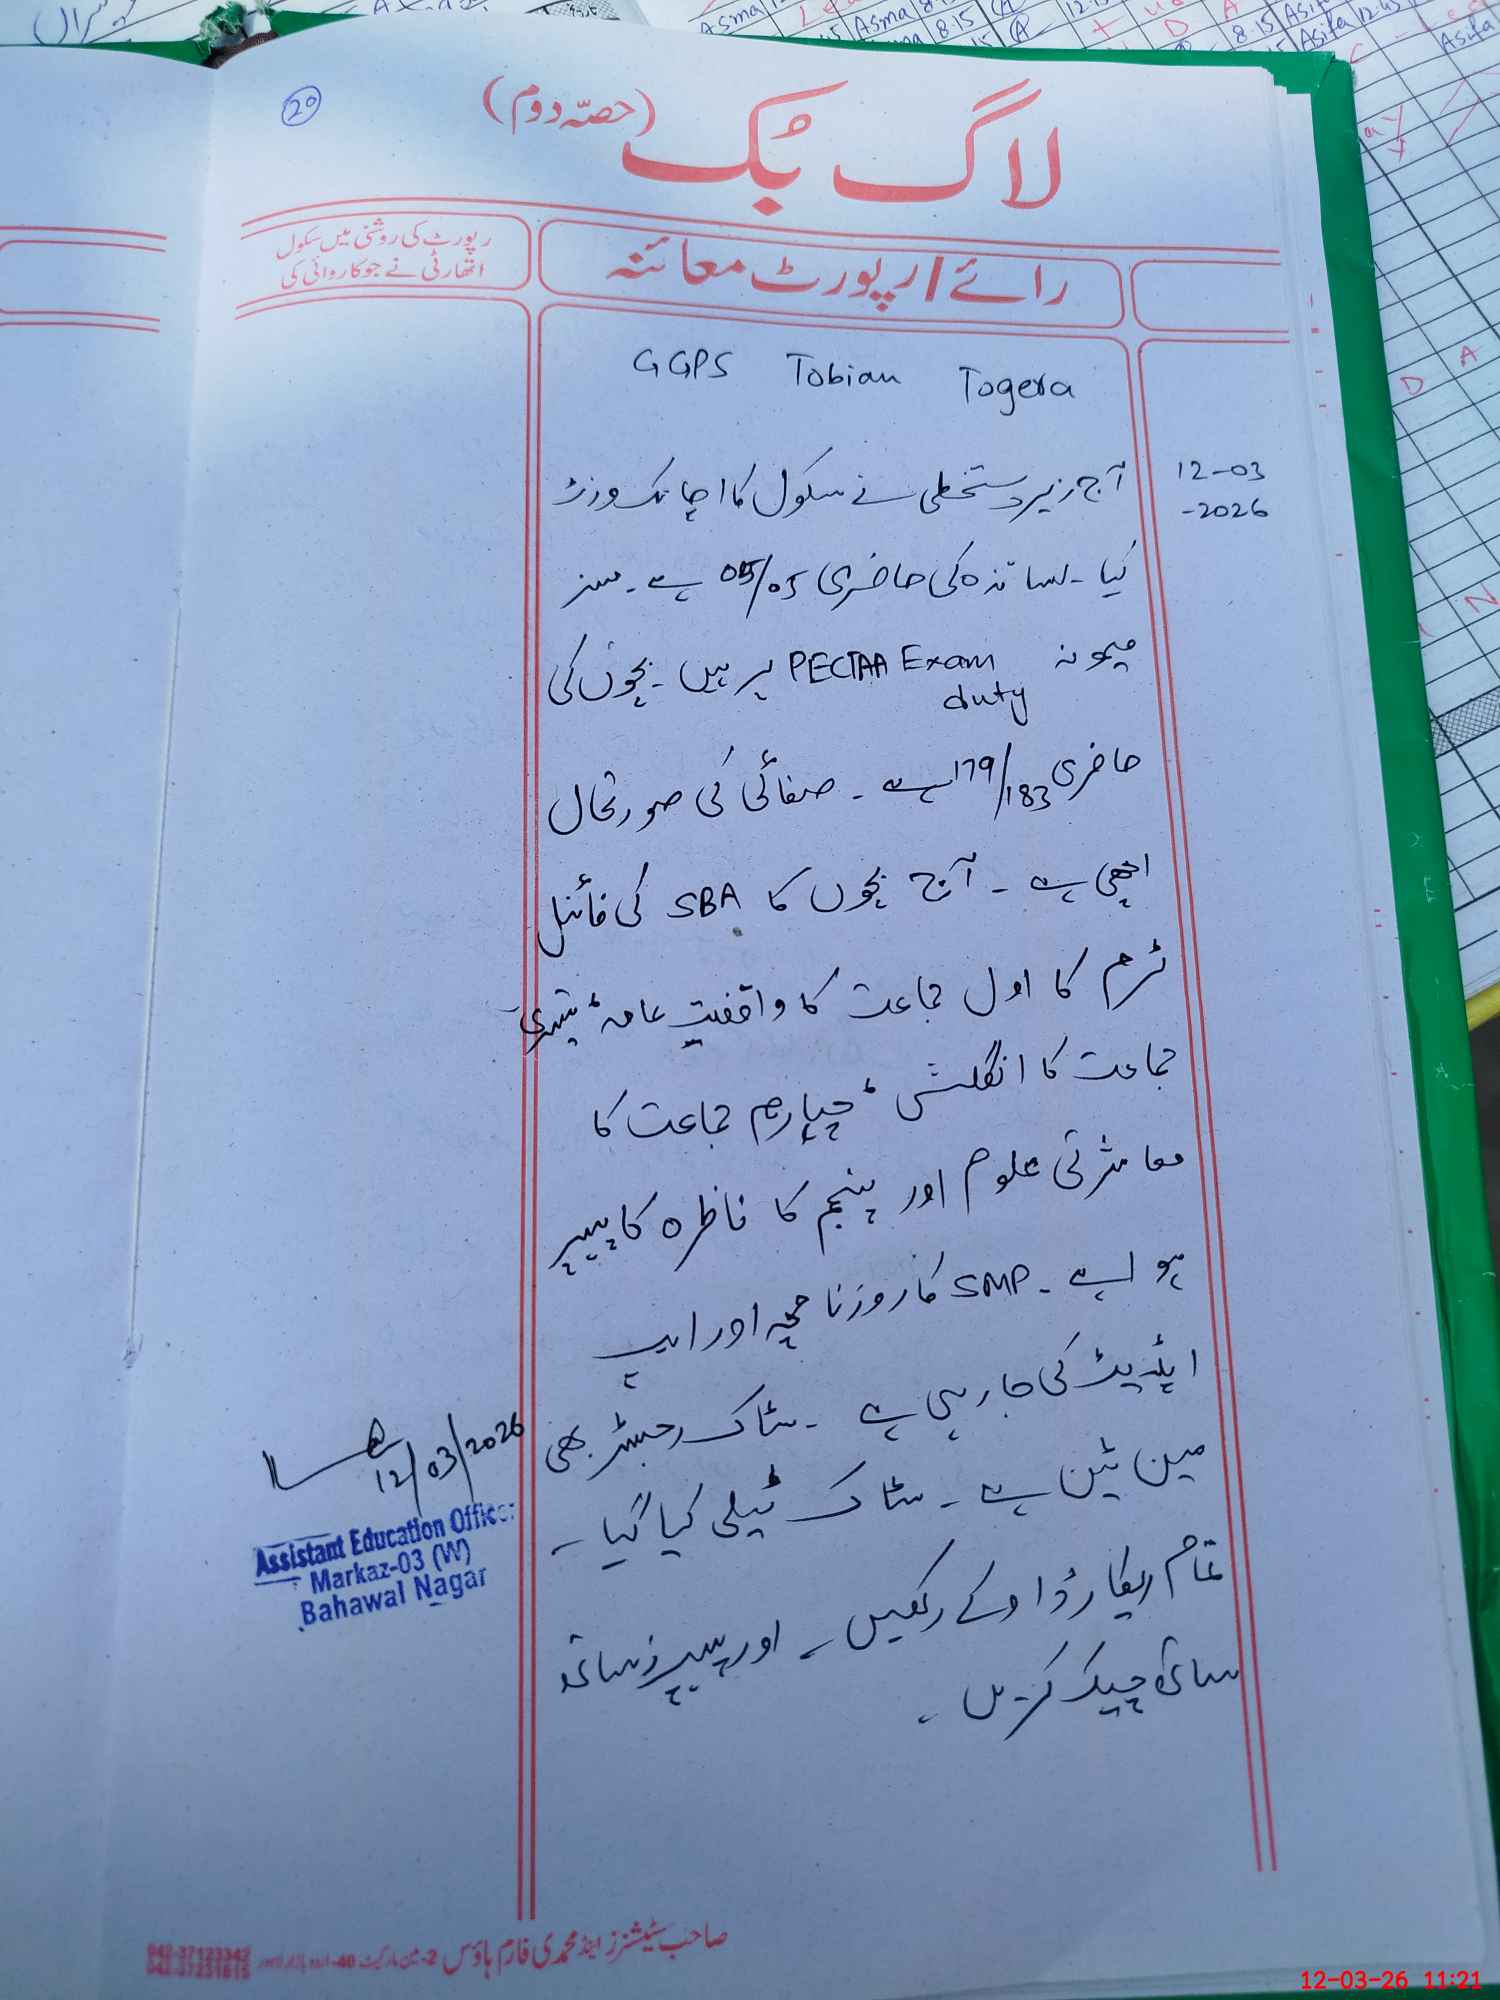 20
لاگ بُک (حصّہ دوم)
رائے/رپورٹ معائنہ
رپورٹ کی روشنی میں سکول
اتھارٹی نے جو کاروائی کی
GGPS Tobian Togera
12-03
-2026
آج زیر دستخطی نے سکول کا اچانک وزٹ
کیا ۔ اساتذہ کی حاضری 05/05 ہے ۔ مسز
میمونہ PECTAA Exam duty پر ہیں ۔ بچوں کی
حاضری 179/183 ہے ۔ صفائی کی صورتحال
اچھی ہے ۔ آج بچوں کا SBA کی فائنل
ٹرم کا اول جماعت کا واقفیت عامہ ، تیسری
جماعت کا انگلش ، چہارم جماعت کا
معاشرتی علوم اور پنجم کا ناظرہ کا پیپر
ہوا ہے ۔ SMP کا روزنامچہ اور ایپ
اپڈیٹ کی جا رہی ہے ۔ سٹاک رجسٹر بھی
مین ٹین ہے ۔ سٹاک ٹیلی کیا گیا ۔
تمام ریکارڈ اوکے رکھیں ۔ اور پیپرز ساتھ
ساتھ چیک کریں ۔
12/03/2026
Assistant Education Officer
Markaz-03 (W)
Bahawal Nagar
صاحب سٹیشنرز اینڈ محمدی فارم ہاؤس 2-مین مارکیٹ 40-اردو بازار لاہور
042-37123342
12-03-26 11:21